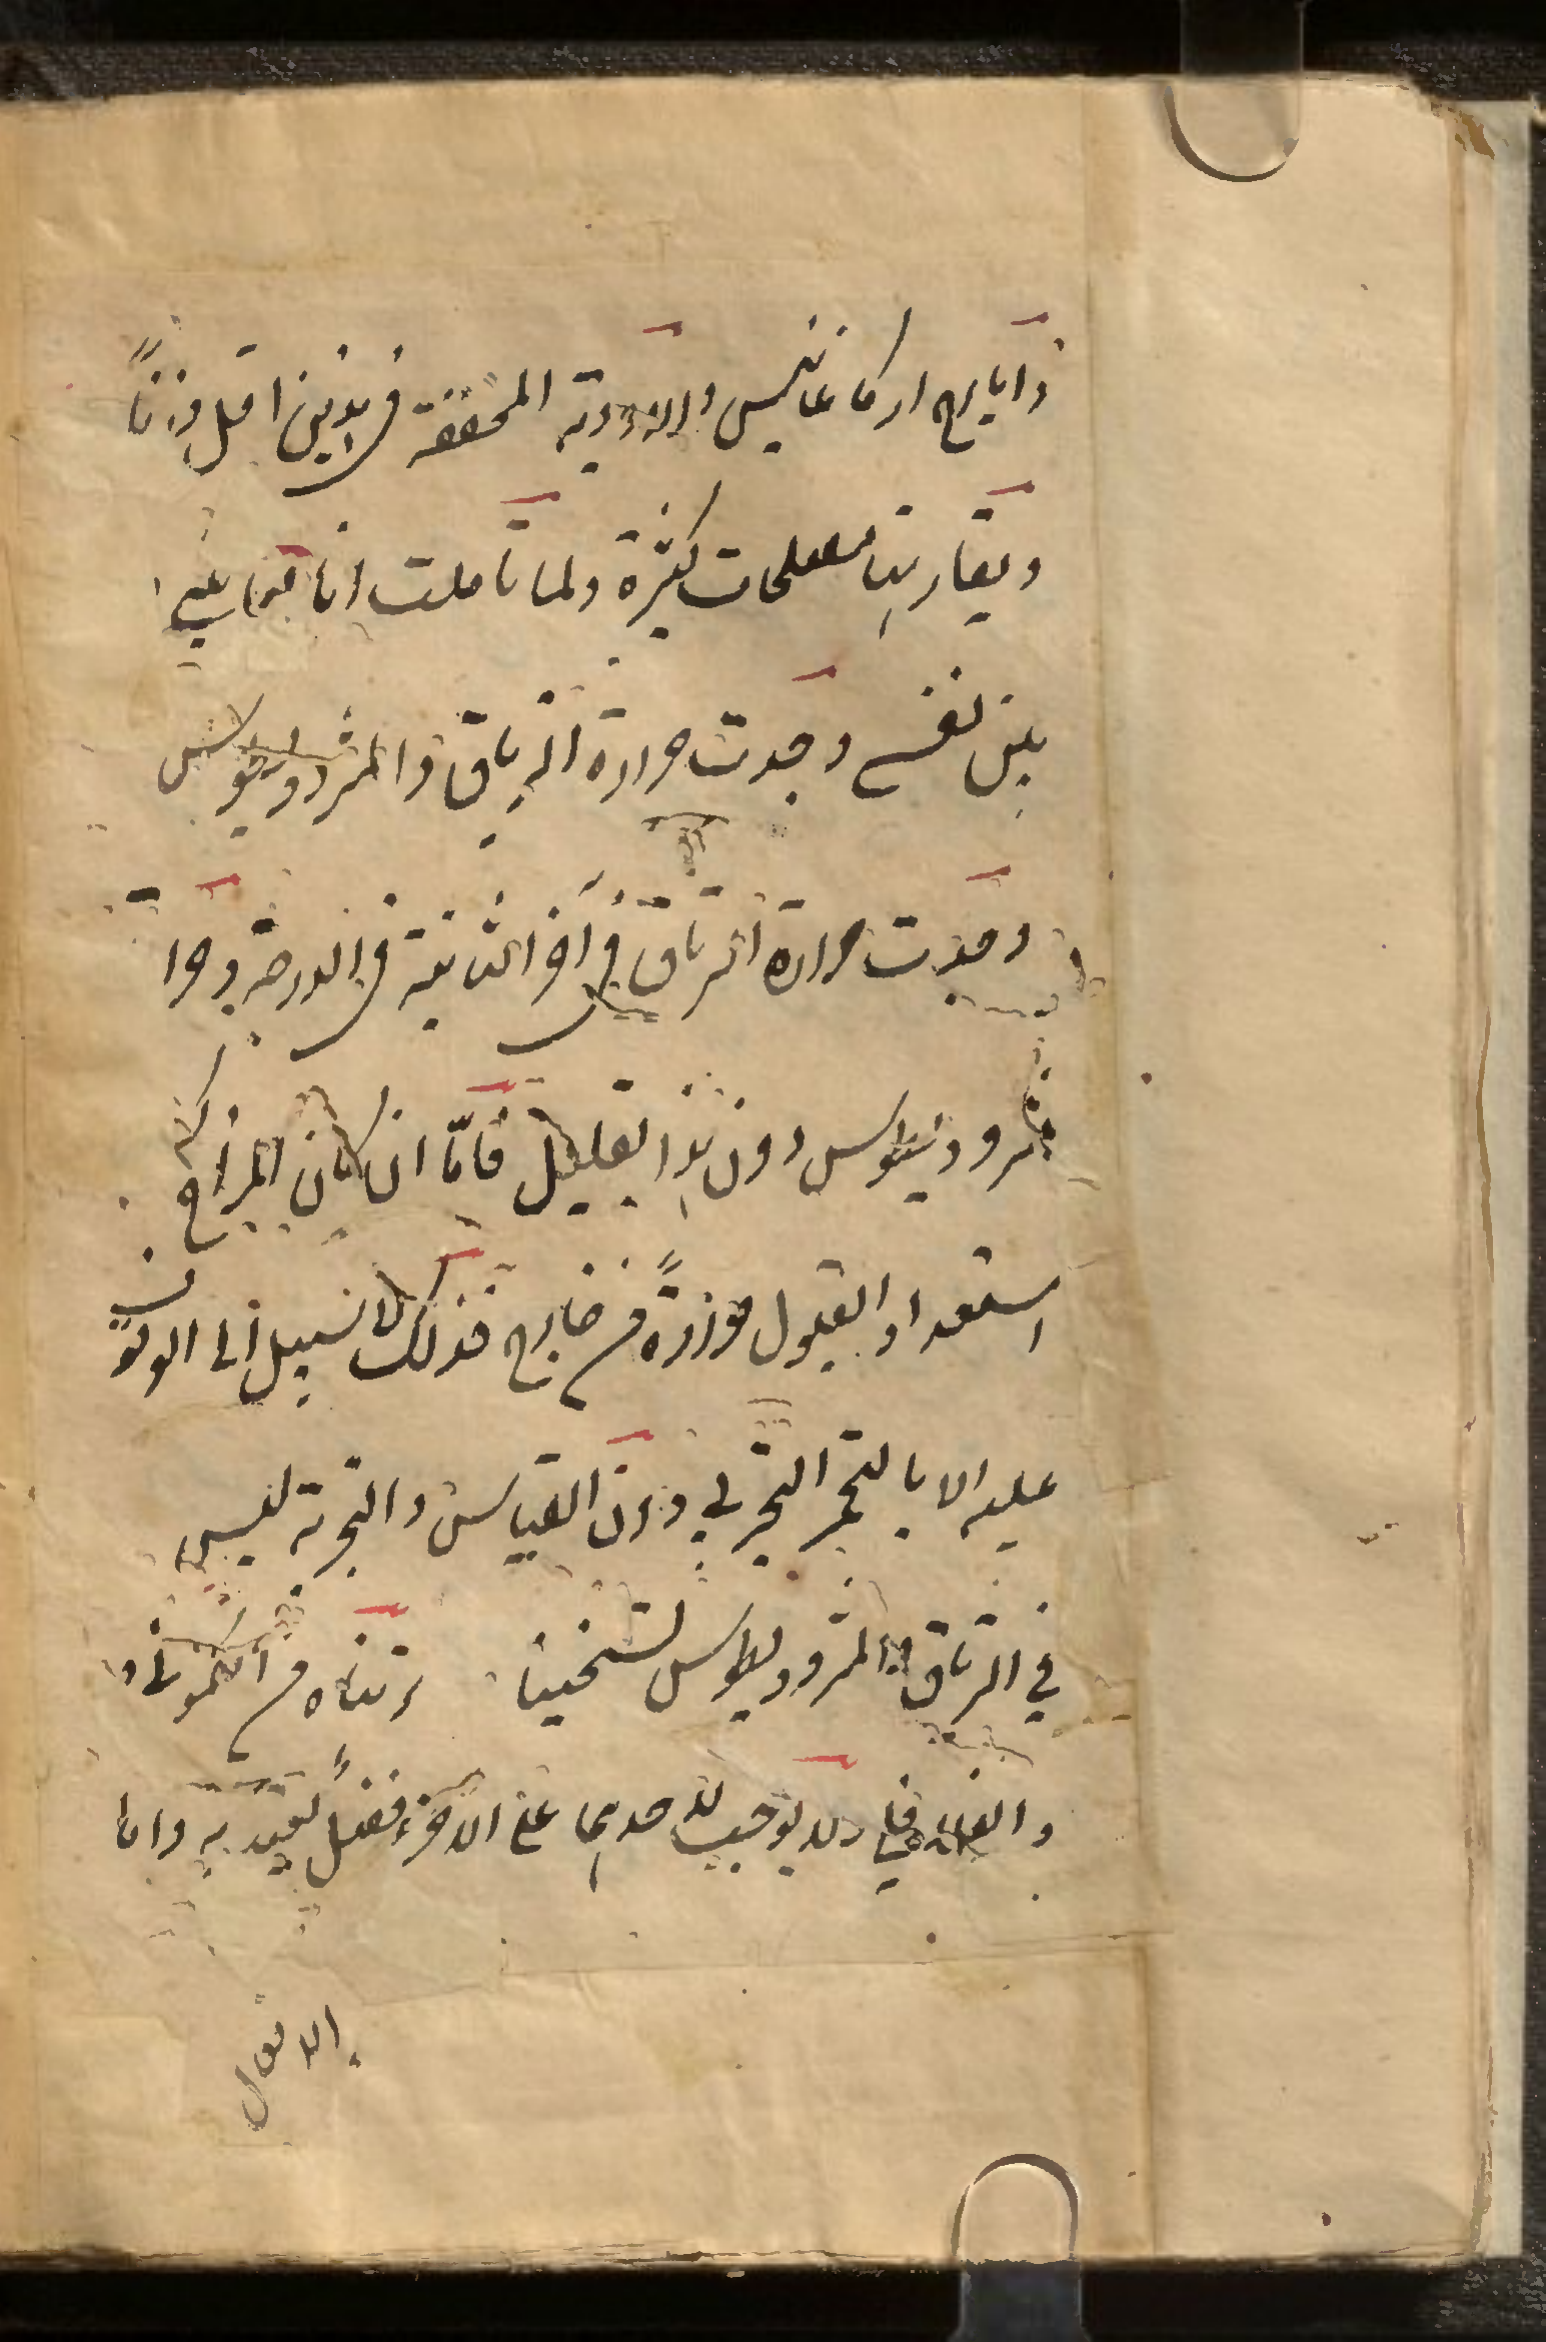 وايارج اركاغانيس والادوية المحققة في هذين اقل وزنا
ويقارنها مصلحات كثيرة ولما تاملت انا فيما بيني
بين نفسي وجدت حرارة الترياق والمثروديطوس
وجدت حرارة الترياق في آخر الثانية في الدرجة وحرا
مثروديطوس دون هذا بقليل فامّا ان كان المزاج
استعداد القبول موزرة من خارج فذلك لا سبيل الى الوقوف
عليه الا بالتجر التجربي دون القياس والتجربة ليس
في الترياق والمثروديطوس تسخينا من الكموني
والفلافلي ولا يوجب لاحدهما على الآخر فضل يعتد به واما